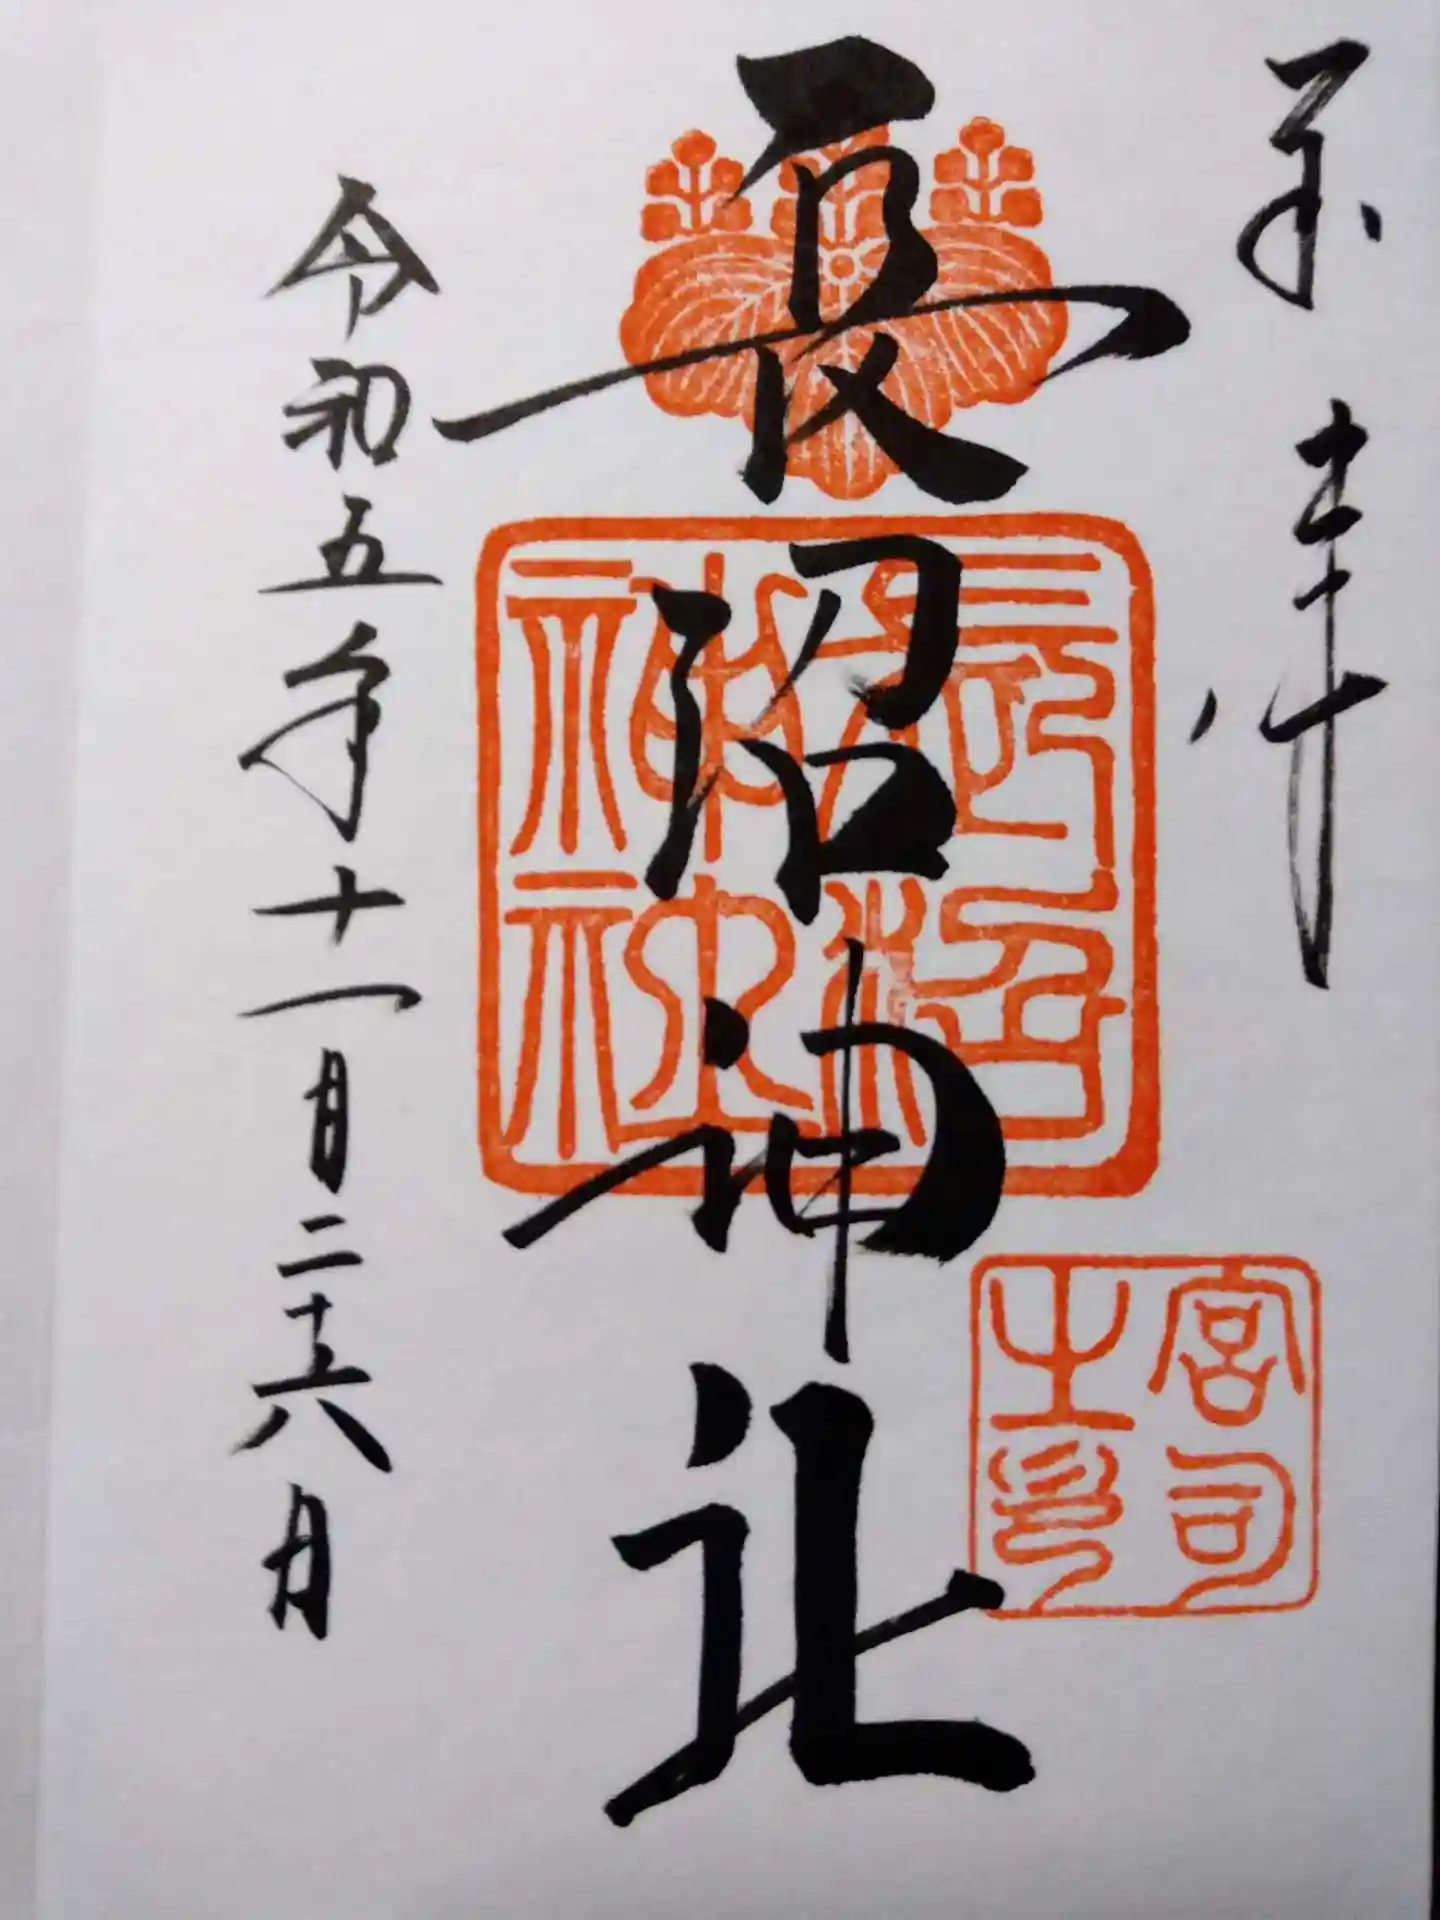 奉拝
長沼神社
長沼
神社
宮司
之印
令和五年十一月二十六日